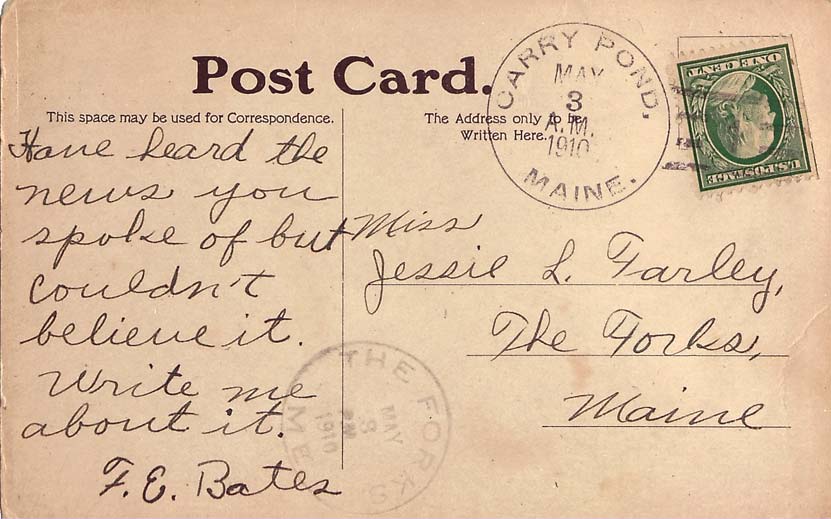 Post Card.
This space may be used for Correspondence.
The Address only to be
Written Here.
CARRY POND,
MAY
3
A.M.
1910
MAINE.
ONE CENT
U.S. POSTAGE
Have heard the
news you
spoke of but
couldn't
believe it.
Write me
about it.
F. E. Bates
Miss
Jessie L. Farley,
The Forks,
Maine
THE FORKS
MAY
3
1910
ME